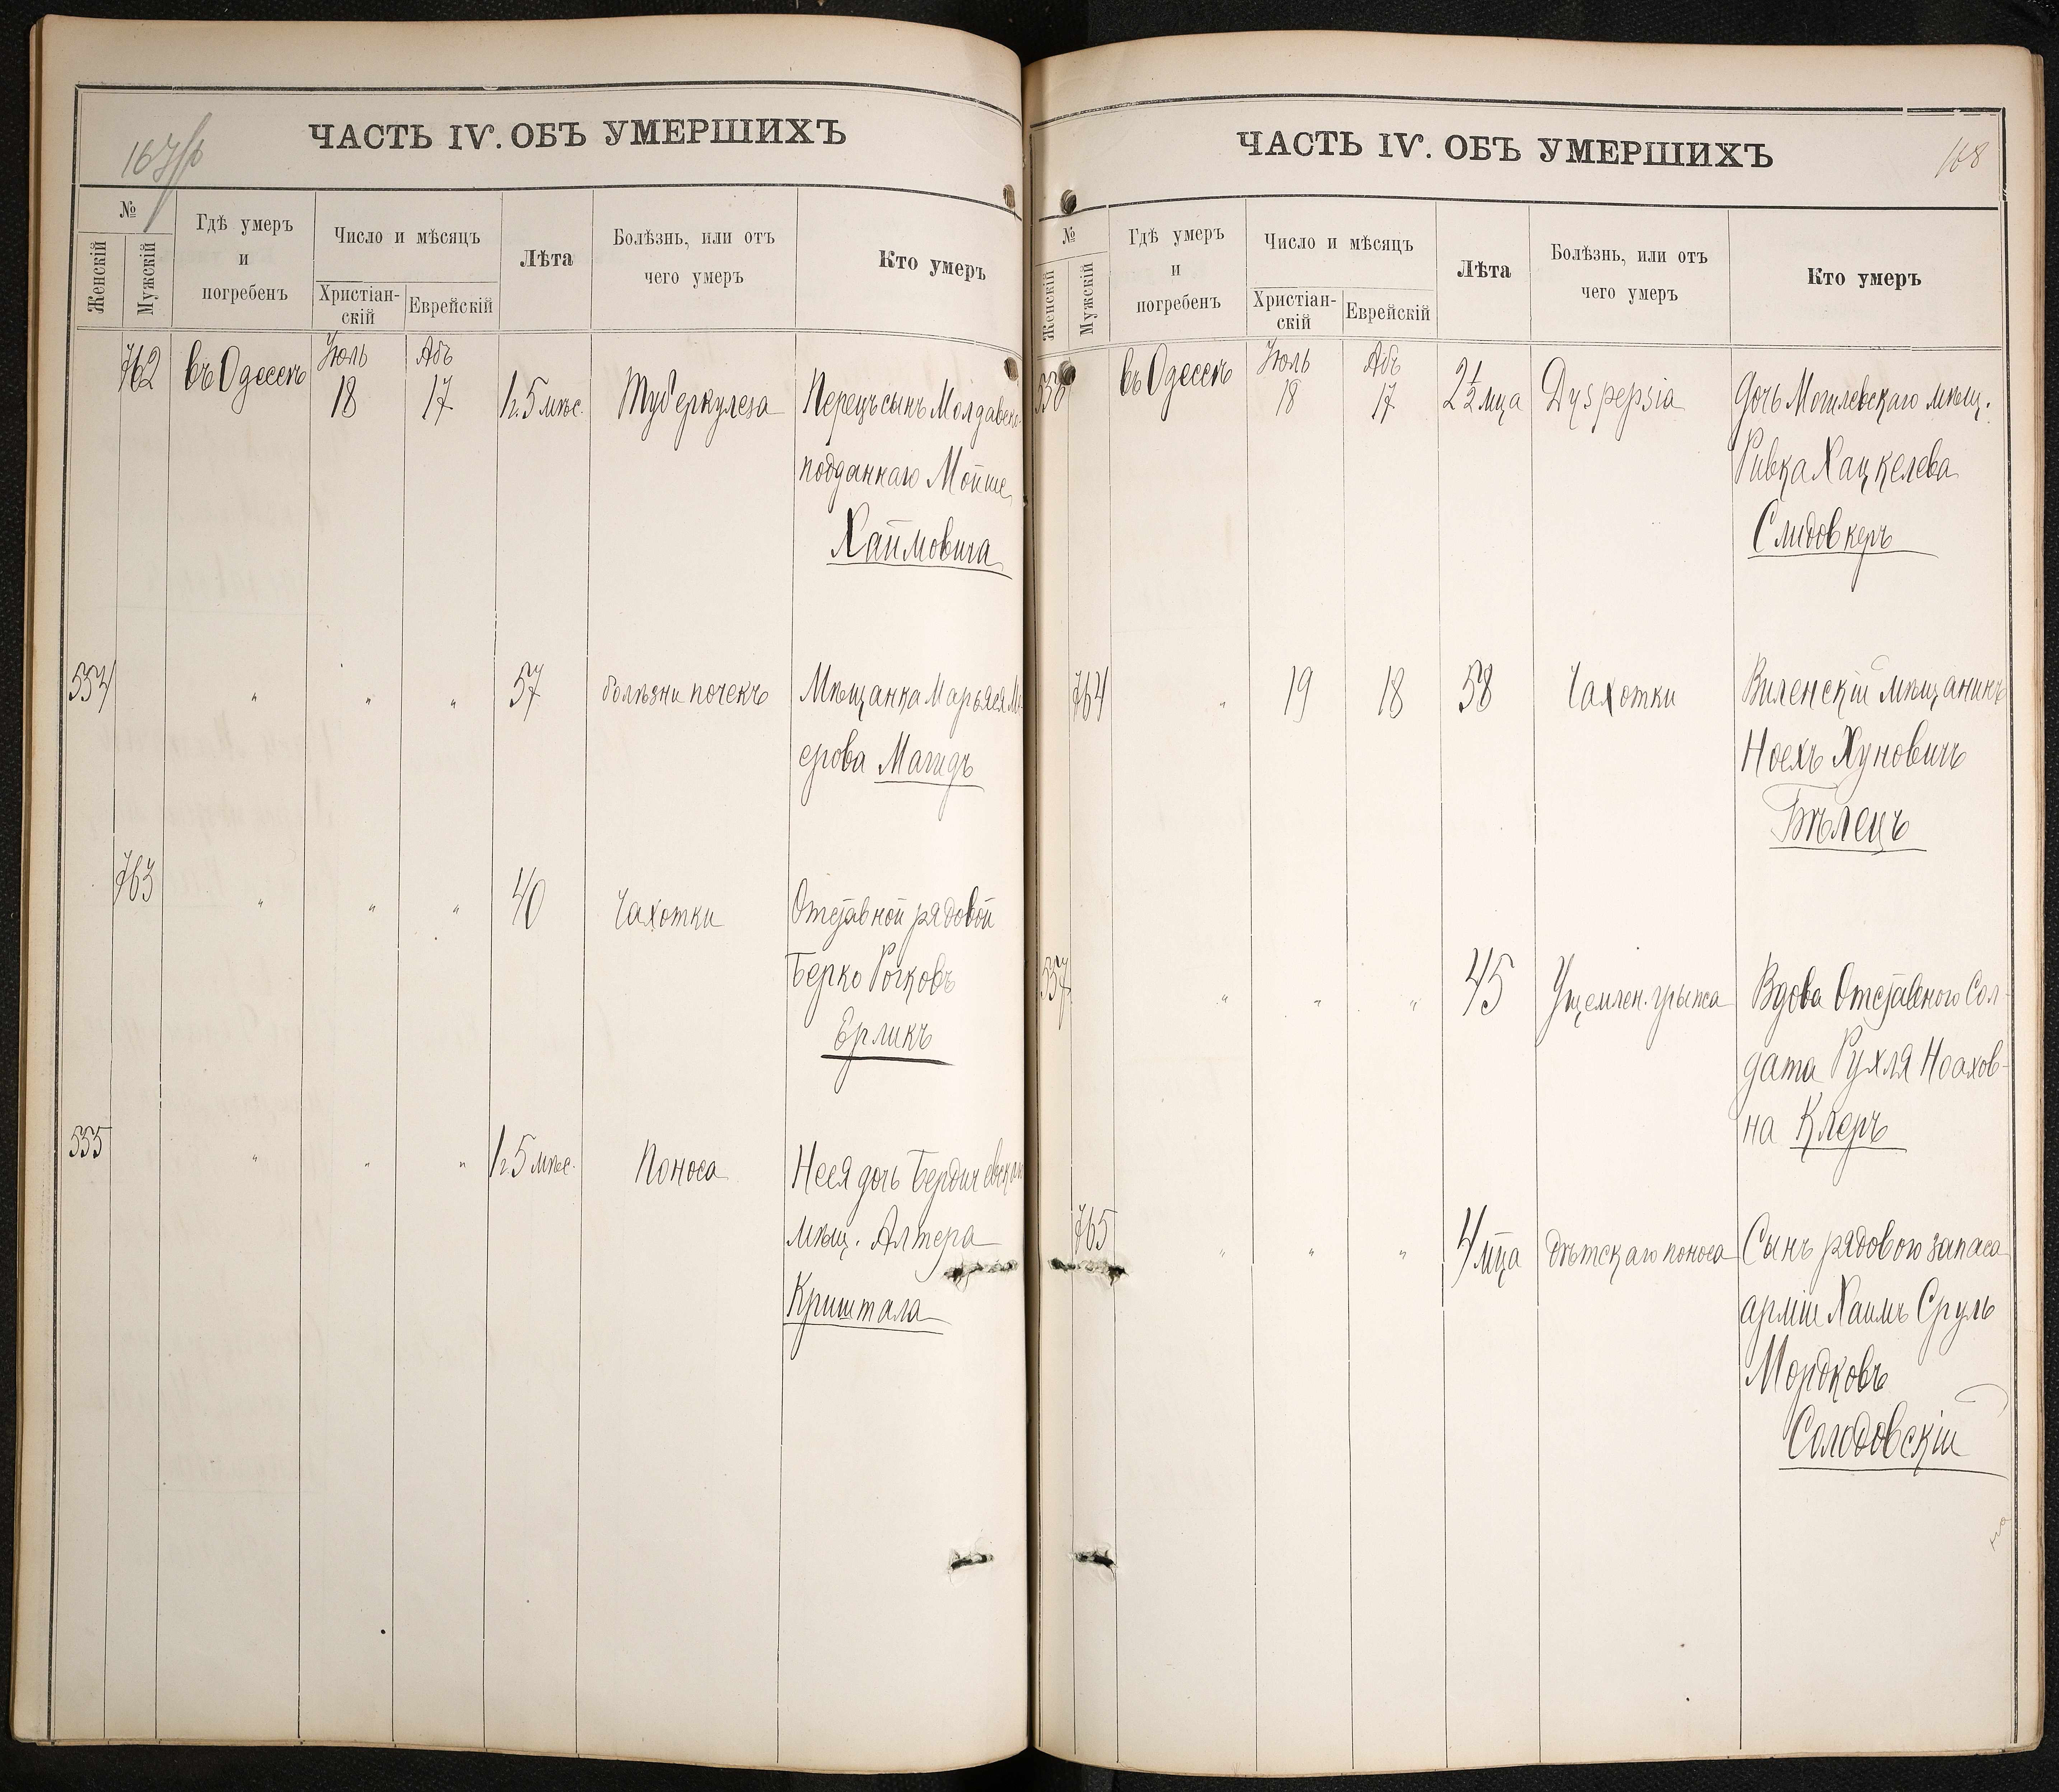 167/р
ЧАСТЬ IV. ОБЪ УМЕРШИХЪ
№
Женскій
Мужскій
Гдѣ умеръ
и
погребенъ
Число и мѣсяцъ
Христіан-
скій
Еврейскій
Лѣта
Болѣзнь, или отъ
чего умеръ
Кто умеръ
762 въ Одессѣ Іюль 18 Абъ 17 1 г. 5 мѣс. Туберкулеза Перецъ сынъ Молдавск.
подданнаго Мойше
Хаймовича
554 " " " 57 болѣзни почекъ Мѣщанка Марьяся Ме-
ерова Магидъ
763 " " " 40 Чахотки Отставной рядовой
Берко Рочковъ
Ерликъ
555 " " " 1 г. 5 мѣс. Поноса Неся дочь Бердичевскаго
мѣщ. Алтера
Криштала
168
ЧАСТЬ IV. ОБЪ УМЕРШИХЪ
№
Женскій
Мужскій
Гдѣ умеръ
и
погребенъ
Число и мѣсяцъ
Христіан-
скій
Еврейскій
Лѣта
Болѣзнь, или отъ
чего умеръ
Кто умеръ
556 въ Одессѣ Іюль 18 Абъ 17 2½ мца Dyspepsia Дочь Могилевскаго мѣщ.
Ривка Хацкелева
Слидовкеръ
764 " 19 18 58 Чахотки Виленскій мѣщанинъ
Ноехъ Хуновичъ
Бѣлецъ
557 " " " 45 Ущемлен. грыжа Вдова Отставного Сол-
дата Рухля Ноахов-
на Клеръ
765 " " " 4 мца дѣтскаго поноса Сынъ рядового запаса
арміи Хаимъ Сруль
Мордковъ
Солодовскій